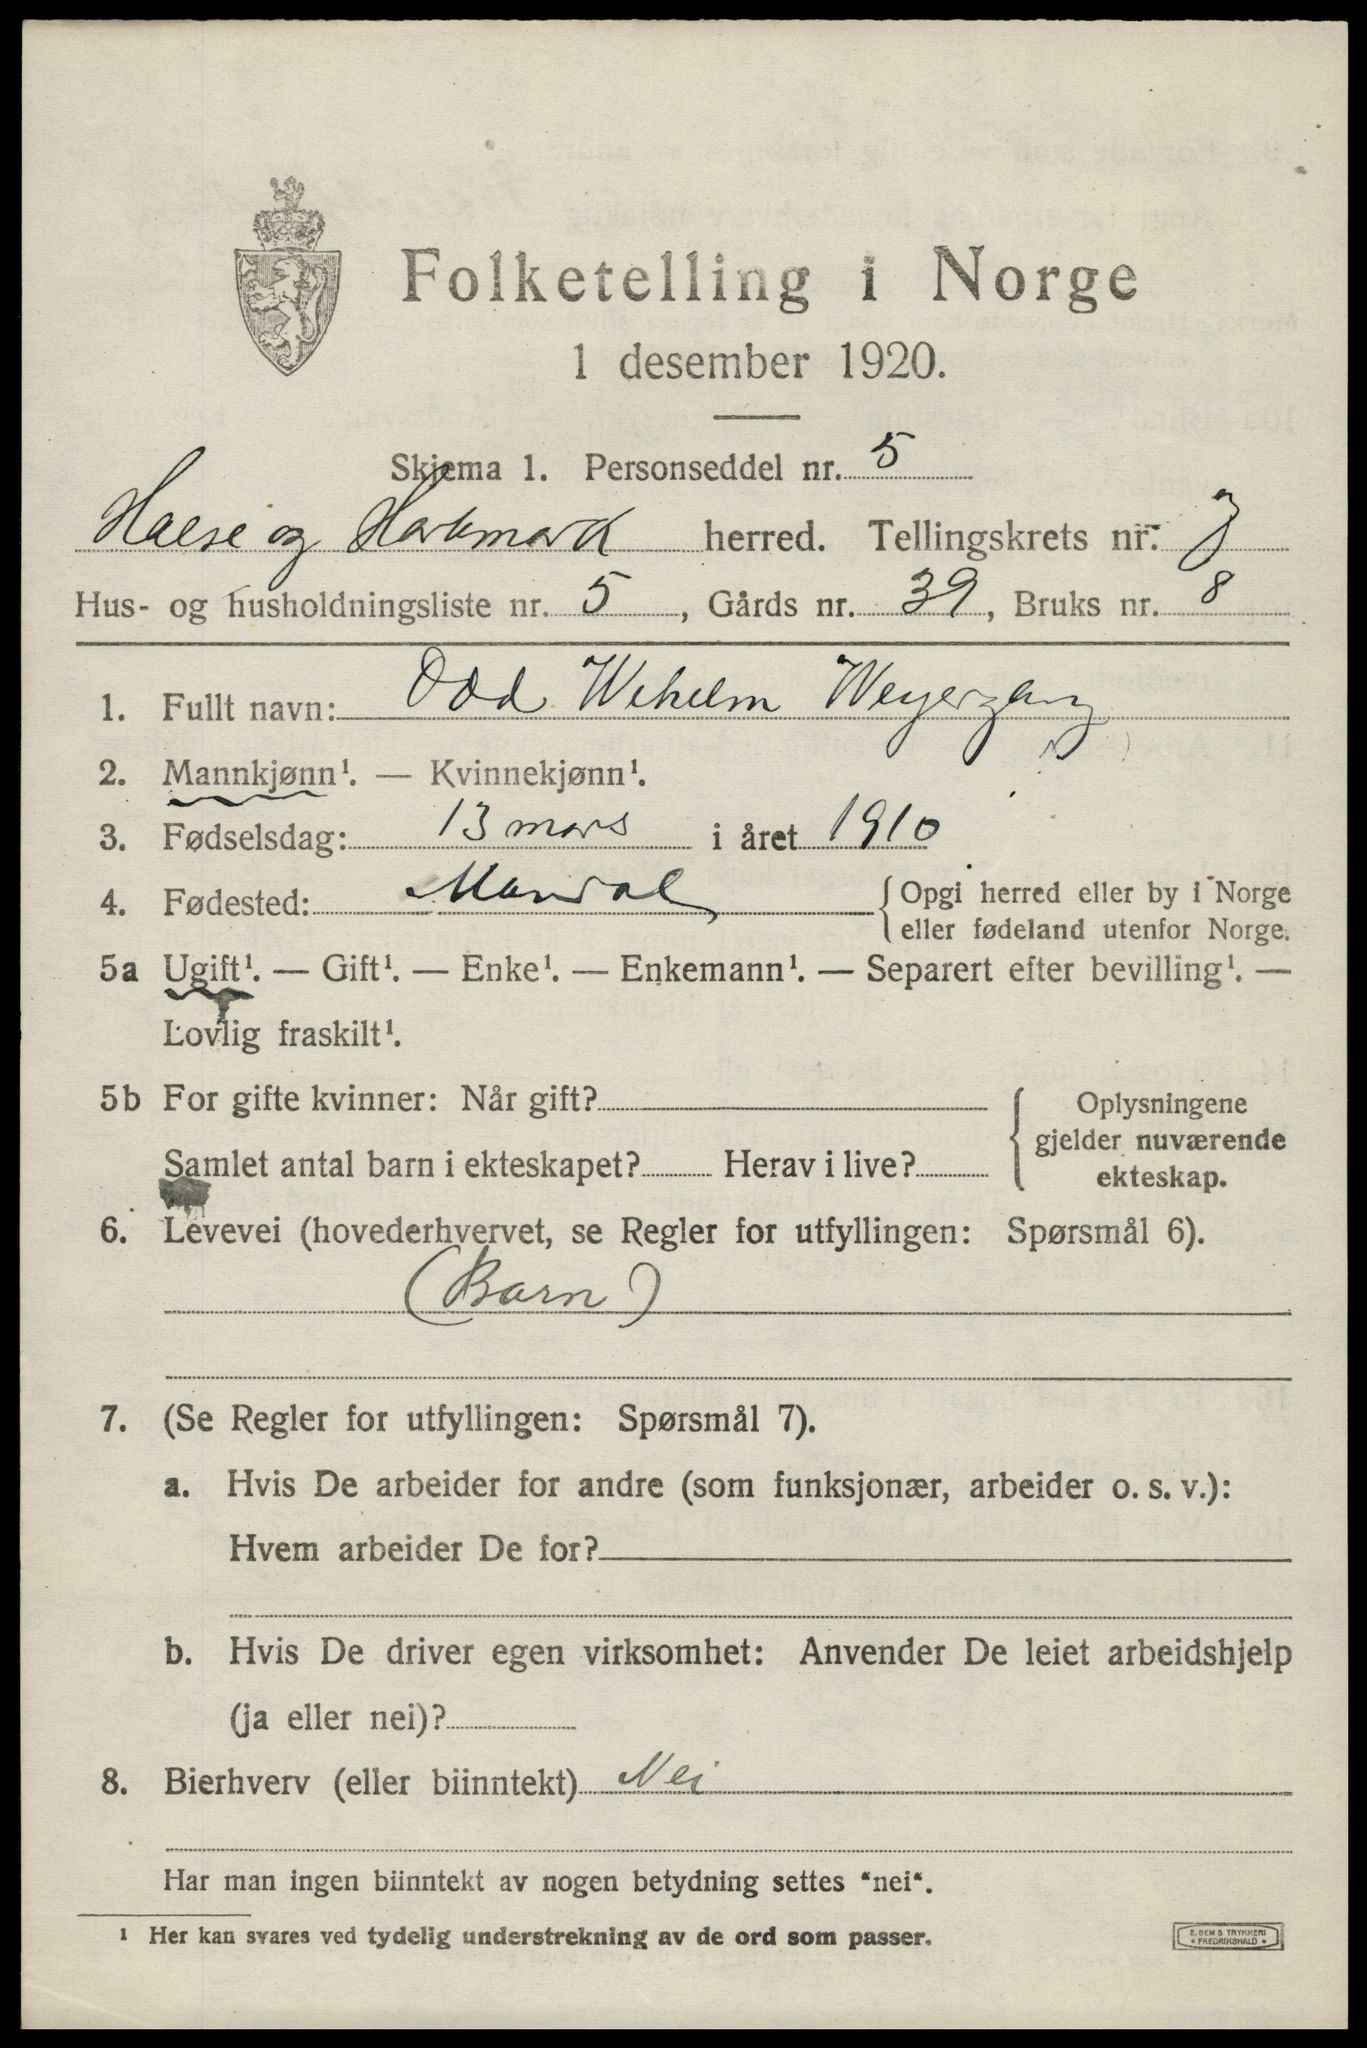 Folketelling i Norge
1 desember 1920.
Skjema 1. Personseddel nr. 5
Halse og Harkmark herred. Tellingskrets nr. 7
Hus- og husholdningsliste nr. 5, Gårds nr. 39, Bruks nr. 8
1. Fullt navn: Odd Wihelm Weyergang
2. Mannkjønn¹. — Kvinnekjønn¹.
3. Fødselsdag: 13 mars i året 1910
4. Fødested: Mandal {Opgi herred eller by i Norge
eller fødeland utenfor Norge.
5a Ugift¹. — Gift¹. — Enke¹. — Enkemann¹. — Separert efter bevilling¹. —
Lovlig fraskilt¹.
5b For gifte kvinner: Når gift? {Oplysningene
gjelder nuværende
Samlet antal barn i ekteskapet? Herav i live? ekteskap.
6. Levevei (hovederhvervet, se Regler for utfyllingen: Spørsmål 6).
(Barn)
7. (Se Regler for utfyllingen: Spørsmål 7).
a. Hvis De arbeider for andre (som funksjonær, arbeider o. s. v.):
Hvem arbeider De for?
b. Hvis De driver egen virksomhet: Anvender De leiet arbeidshjelp
(ja eller nei)?
8. Bierhverv (eller biinntekt) Nei
Har man ingen biinntekt av nogen betydning settes "nei".
¹ Her kan svares ved tydelig understrekning av de ord som passer.
E. SEM S TRYKKERI
* FREDRIKSHALD *